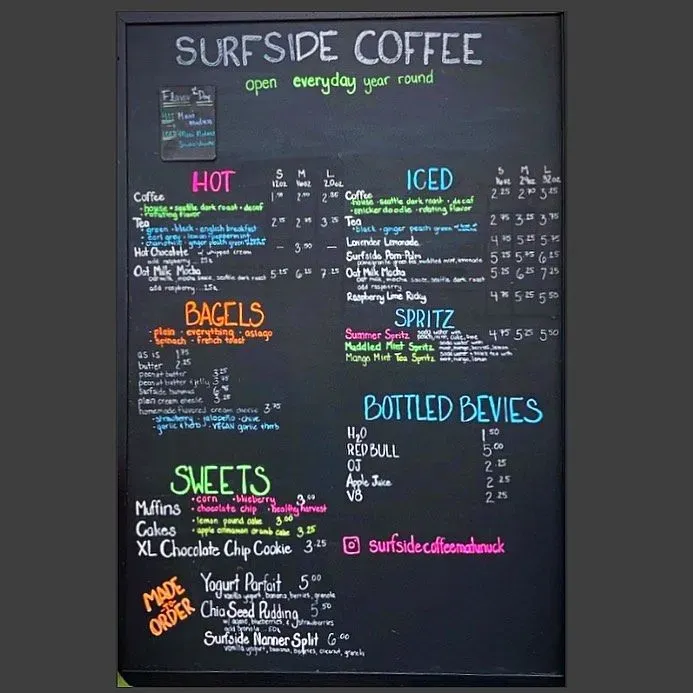 SURFSIDE COFFEE
open everyday year round
Flavor of the Day
HOT
S M L
12oz 16oz 20oz
Coffee 1.90 2.80
• house • seattle dark roast • decaf
• rotating flavor
Tea 2.75 2.95 3.25
• green • black • english breakfast
• earl grey • lemon
• chamomile • ginger peach green
Hot Chocolate w/ whipped cream — 3.50 —
add raspberry
Oat Milk Mocha 5.25 6.25 7.25
oat milk, mocha sauce, seattle dark roast
add raspberry
BAGELS
• plain • everything • asiago
• spinach • french toast
as is 1.75
butter 2.25
peanut butter 3.25
peanut butter & jelly 3.75
Surfside hummus
plain cream cheese 3.25
homemade flavored cream cheese 3.75
• strawberry • jalapeño • chive
• garlic & herb • VEGAN garlic & herb
SWEETS
Muffins • corn • blueberry 3.00
• chocolate chip • healthy harvest
Cakes • lemon pound cake 3.00
• apple cinnamon crumb cake 3.25
XL Chocolate Chip Cookie 3.25
MADE TO ORDER
Yogurt Parfait 5.00
vanilla yogurt, banana, berries, granola
Chia Seed Pudding 5.50
blueberries, & strawberries
add granola
Surfside Nanner Split 6.00
vanilla yogurt, banana, berries, coconut, granola
ICED
S M L
16oz 24oz 32oz
Coffee 2.25 2.90 5.25
• house • seattle dark roast • decaf
• snickerdoodle • rotating flavor
Tea 2.75 3.25 3.75
• black • ginger peach green
Lavender Lemonade 4.75 5.25 5.75
Surfside Pom-Palm 5.25 5.75 6.25
pomegranate green tea, muddled mint, lemonade
Oat Milk Mocha 5.25 6.25 7.25
oat milk, mocha sauce, seattle dark roast
add raspberry
Raspberry Lime Ricky 4.75 5.25 5.50
SPRITZ
Summer Spritz soda water with 4.75 5.25 5.50
peach, mint, cuke, lime
Muddled Mint Spritz soda water with
mint, mango, berries, lemon
Mango Mint Tea Spritz soda water & black tea with
mint, mango, lemon
BOTTLED BEVIES
H2O 1.50
RED BULL 5.00
OJ 2.25
Apple Juice 2.25
V8 2.25
surfsidecoffeematunuck